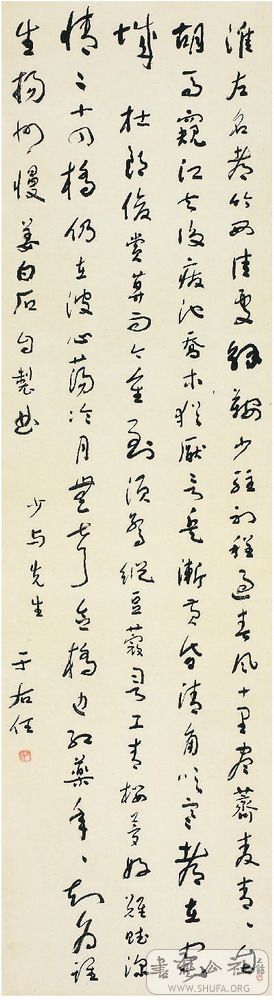 淮左名都竹西佳處解鞍少駐初程過春風十里盡薺麥青〻自
胡馬窺江去後廢池喬木猶厭言兵漸黃昏清角吹寒都在空
城杜郎俊賞算而今重到須驚縱豆蔻詞工青樓夢好難賦深
情二十四橋仍在波心蕩冷月無聲念橋邊紅藥年〻知為誰
生揚州慢姜白石自製曲
少与先生
于右任
WWW.SHUFA.ORG